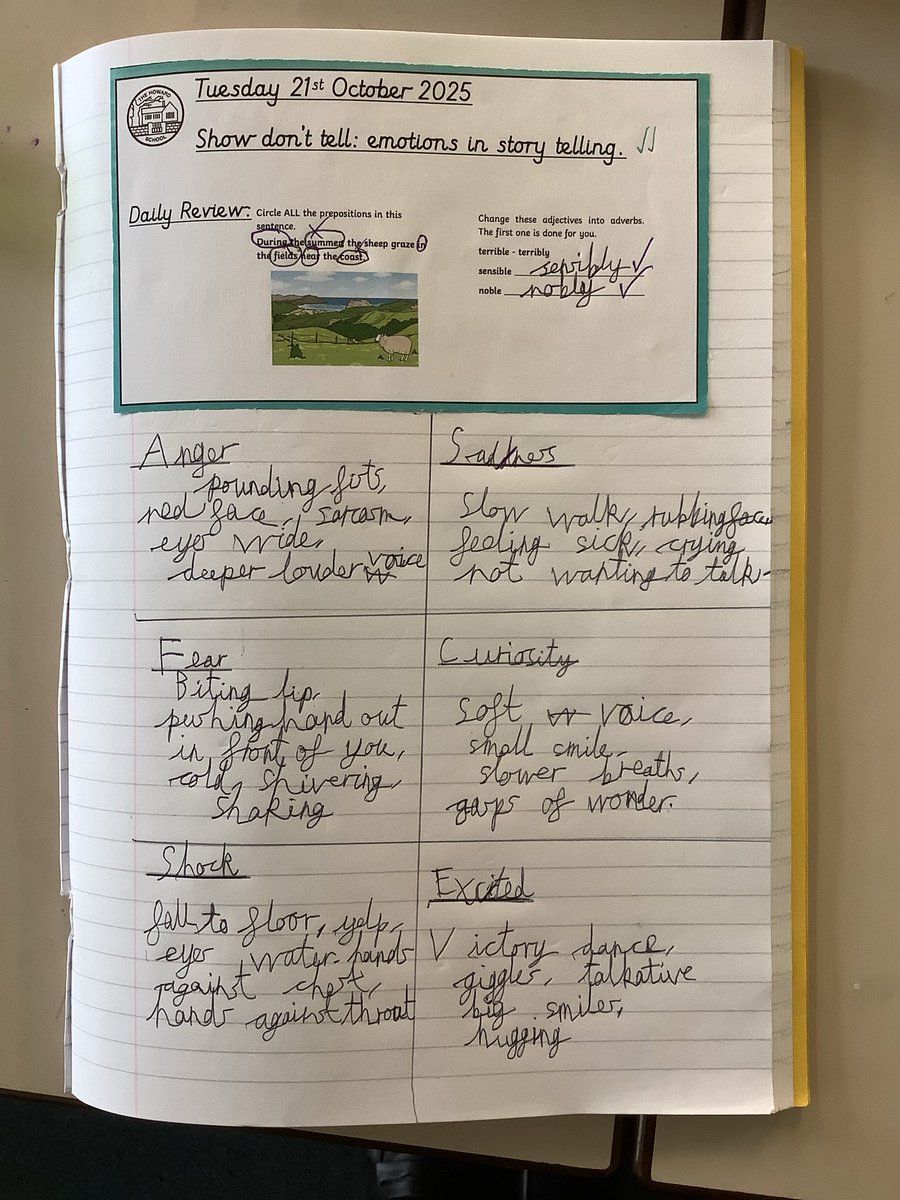 THE HOWARD SCHOOL
Tuesday 21st October 2025
Show don't tell: emotions in story telling.
Daily Review:
Circle ALL the prepositions in this
sentence.
During the summer the sheep graze in
the fields near the coast.
Change these adjectives into adverbs.
The first one is done for you.
terrible - terribly
sensible sensibly
noble nobly
Anger
pounding fists,
red face, sarcasm,
eyes wide,
deeper louder voice
Sadness
Slow walk, rubbing face
feeling sick, crying
not wanting to talk
Fear
Biting lip,
pushing hand out
in front of you,
cold, shivering,
shaking
Curiosity
Soft voice,
small smile,
slower breaths,
gasps of wonder.
Shock
fall to floor, yelp,
eyes water hands
against chest,
hands against throat
Excited
Victory dance,
giggles, talkative
big smiles,
hugging